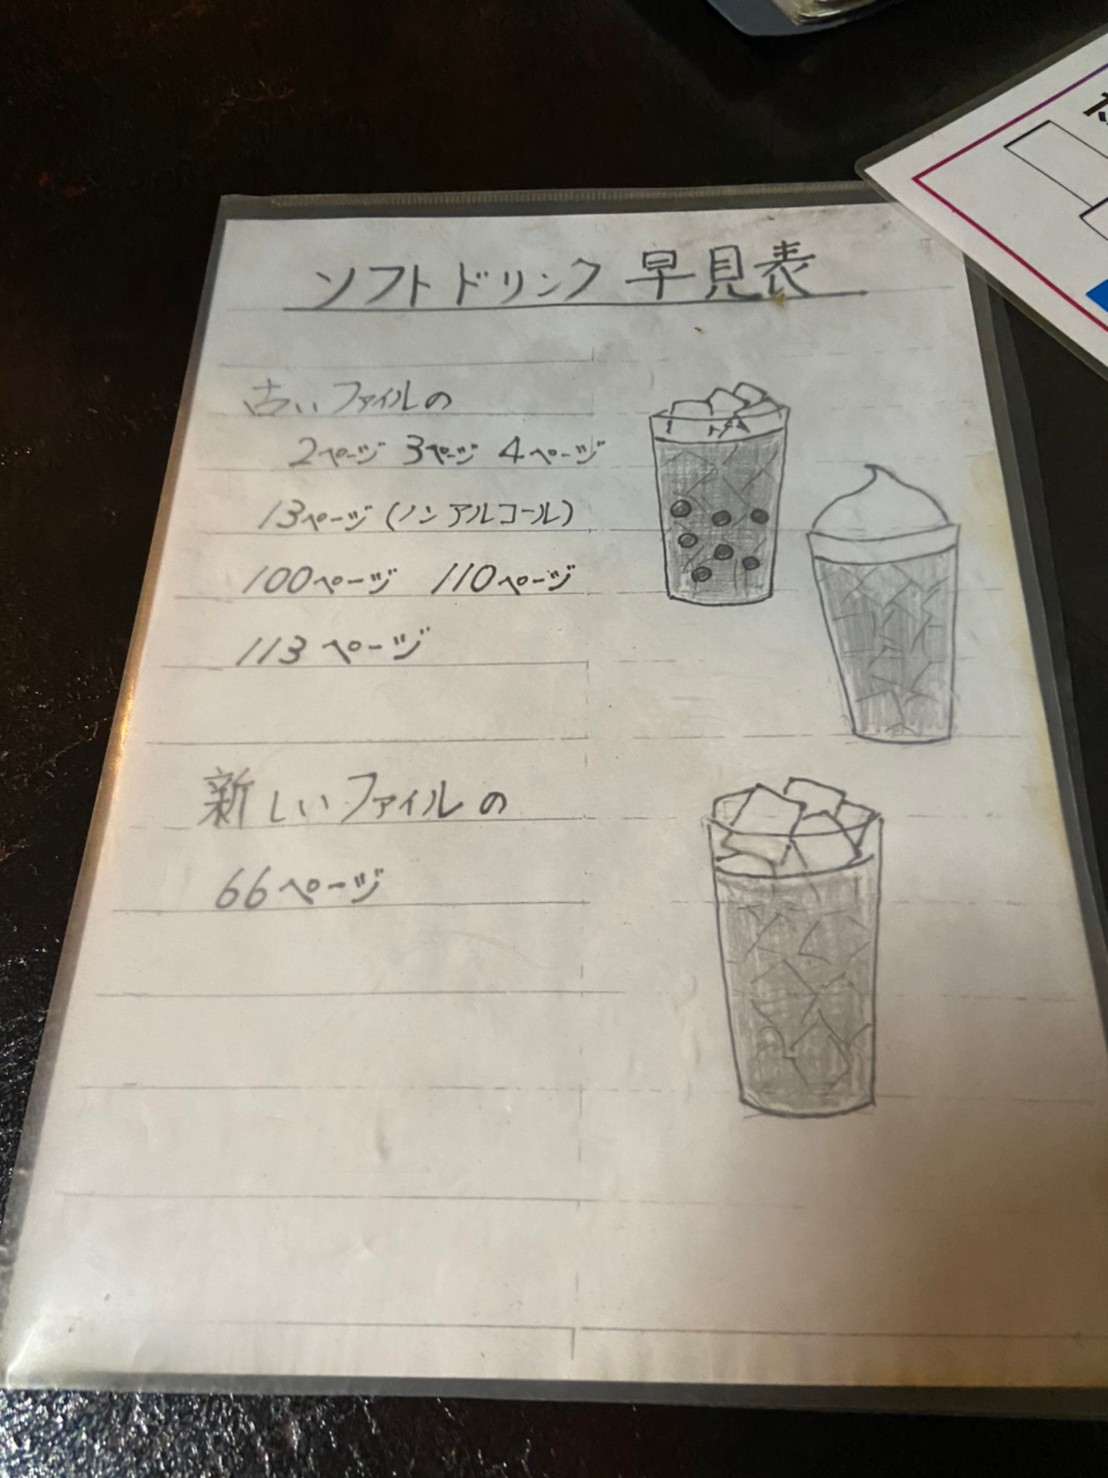 ソフトドリンク 早見表
古いファイルの
2ページ 3ページ 4ページ
13ページ (ノンアルコール)
100ページ 110ページ
113ページ
新しいファイルの
66ページ